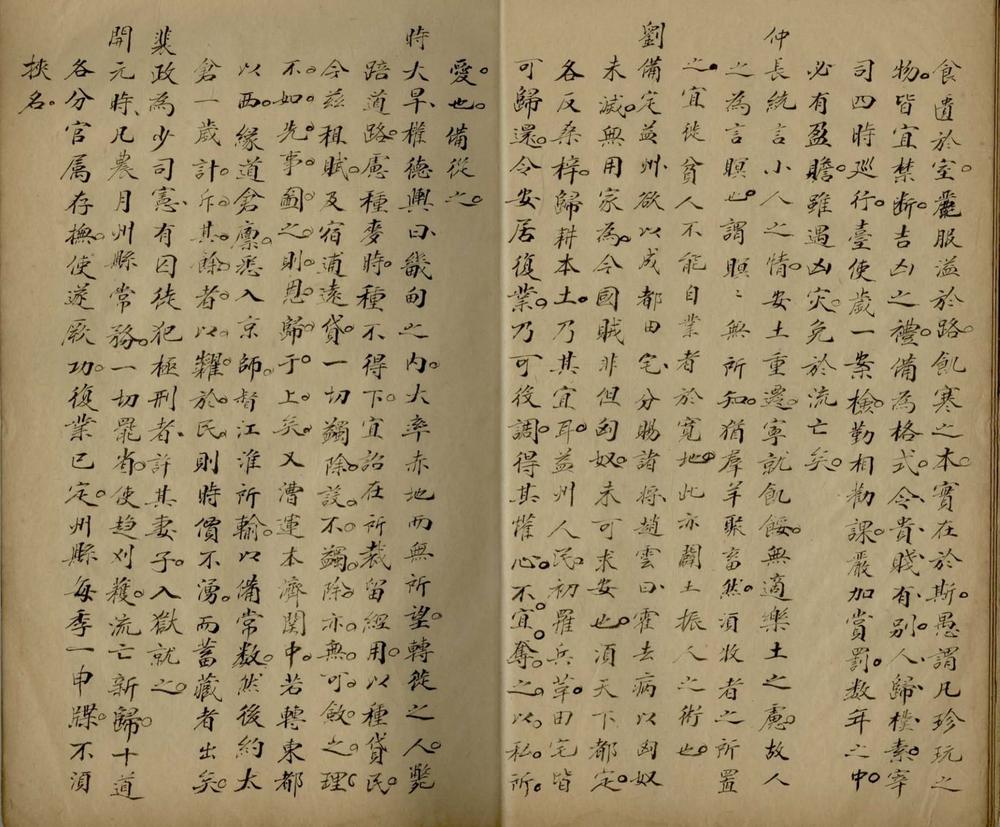 食遺於室。麗服溢於路。飢寒之本。實在於斯。愚謂凡珍玩之
物。皆宜禁断。吉凶之禮。備為格式。令貴賤有別。人歸樸素。宰
司四時巡行。臺使歲一案檢。勤相勸課。嚴加賞罰。数年之中。
必有盈贍。雖遇凶災。免於流亡矣。
仲長統言小人之情。安土重遷。寧就飢餒。無適樂土之慮。故人
之為言瞑也。謂瞑瞑無所知。猶羣羊聚畜然。須牧者之所置
之。宜徙貧人不能自業者於寬地。此亦闢土振人之術也。
劉備定益州。欲以成都田宅。分賜諸将。趙雲曰。霍去病以匈奴
未滅。無用家為。今國賊非但匈奴。未可求安也。須天下都定。
各反桑梓。歸耕本土。乃其宜耳。益州人民。初罹兵革。田宅皆
可歸還。令安居復業。乃可後調。得其懽心。不宜奪之。以私所
愛也。備從之。
時大旱。權德輿曰。畿甸之内。大率赤地而無所望。轉徙之人。斃
踣道路。慮種麥時。種不得下。宜詔在所裁留經用。以種貸民。
今茲租賦。及宿逋遠貸。一切蠲除。設不蠲除。亦無可斂之理。
不如先事圖之。則恩歸于上矣。又漕運本濟関中。若轉東都
以西。縁道倉廪。悉入京師。督江淮所輸。以備常数。然後約太
倉一歲計。斥其餘者。以糶於民。則時價不湧。而蓄藏者出矣。
裴政為少司憲。有囚徒犯極刑者。許其妻子入獄就之。
開元時。凡農月州縣常務。一切罷省。使趋刈穫。流亡新歸。十道
各分官属存撫。使遂厥功。復業已定。州縣每季一申牒。不須
挾名。